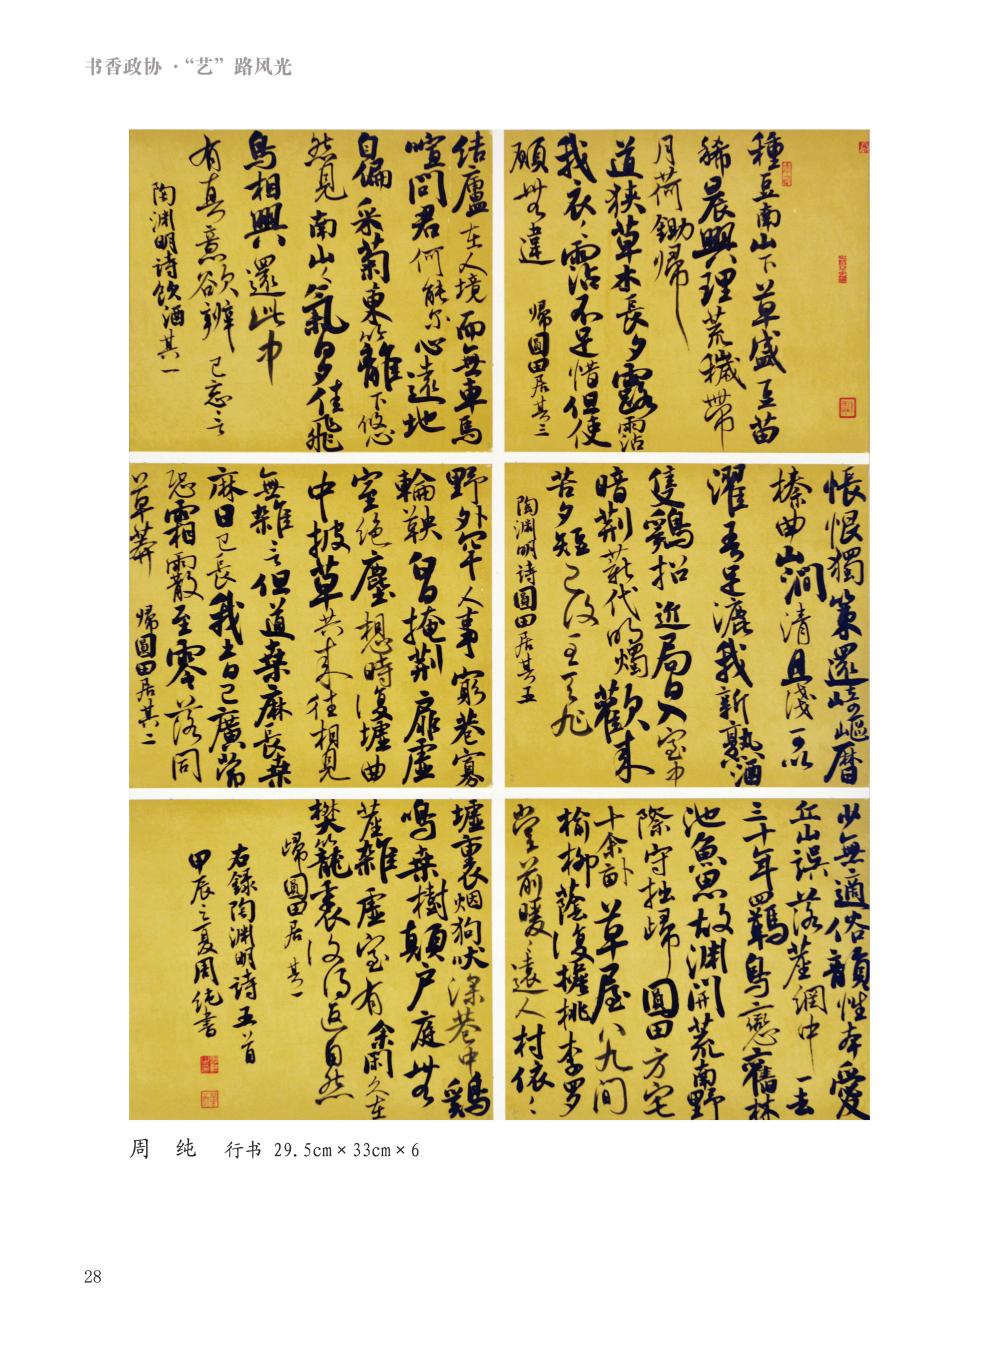 书香政协·“艺”路风光
種豆南山下草盛豆苗
稀晨興理荒穢帶
月荷鋤歸
道狹草木長夕露霑
我衣〻霑不足惜但使
願無違
歸園田居其三
结廬在人境而無車馬
喧问君何能尔心遠地
自偏采菊東籬下悠
然見南山〻氣日夕佳飛
鳥相興還此中
有真意欲辨已忘言
陶渊明诗饮酒其一
悵恨獨策還崎嶇曆
榛曲山澗清且淺可以
濯吾足漉我新熟酒
隻鷄招近局日入室中
暗荆薪代明燭歡来
苦夕短已復至天旭
陶渊明诗園田居其五
野外罕人事窮巷寡
輪鞅白日掩荆扉虚
室绝塵想時復墟曲
中披草共来往相見
無雜言但道桑麻長桑
麻日已長我土日已廣常
恐霜霰至零落同
草莽
歸園田居其二
少無適俗韻性本愛
丘山誤落塵網中一去
三十年羈鳥戀舊林
池魚思故渊開荒南野
際守拙歸園田方宅
十余畝草屋八九間
榆柳蔭後檐桃李罗
堂前曖〻遠人村依〻
墟裏烟狗吠深巷中鷄
鳴桑樹顛户庭無
塵雜虚室有余閑久在
樊籠裏復得返自然
歸園田居其一
右録陶渊明诗五首
甲辰之夏周纯書
周 纯 行书 29.5cm×33cm×6
28